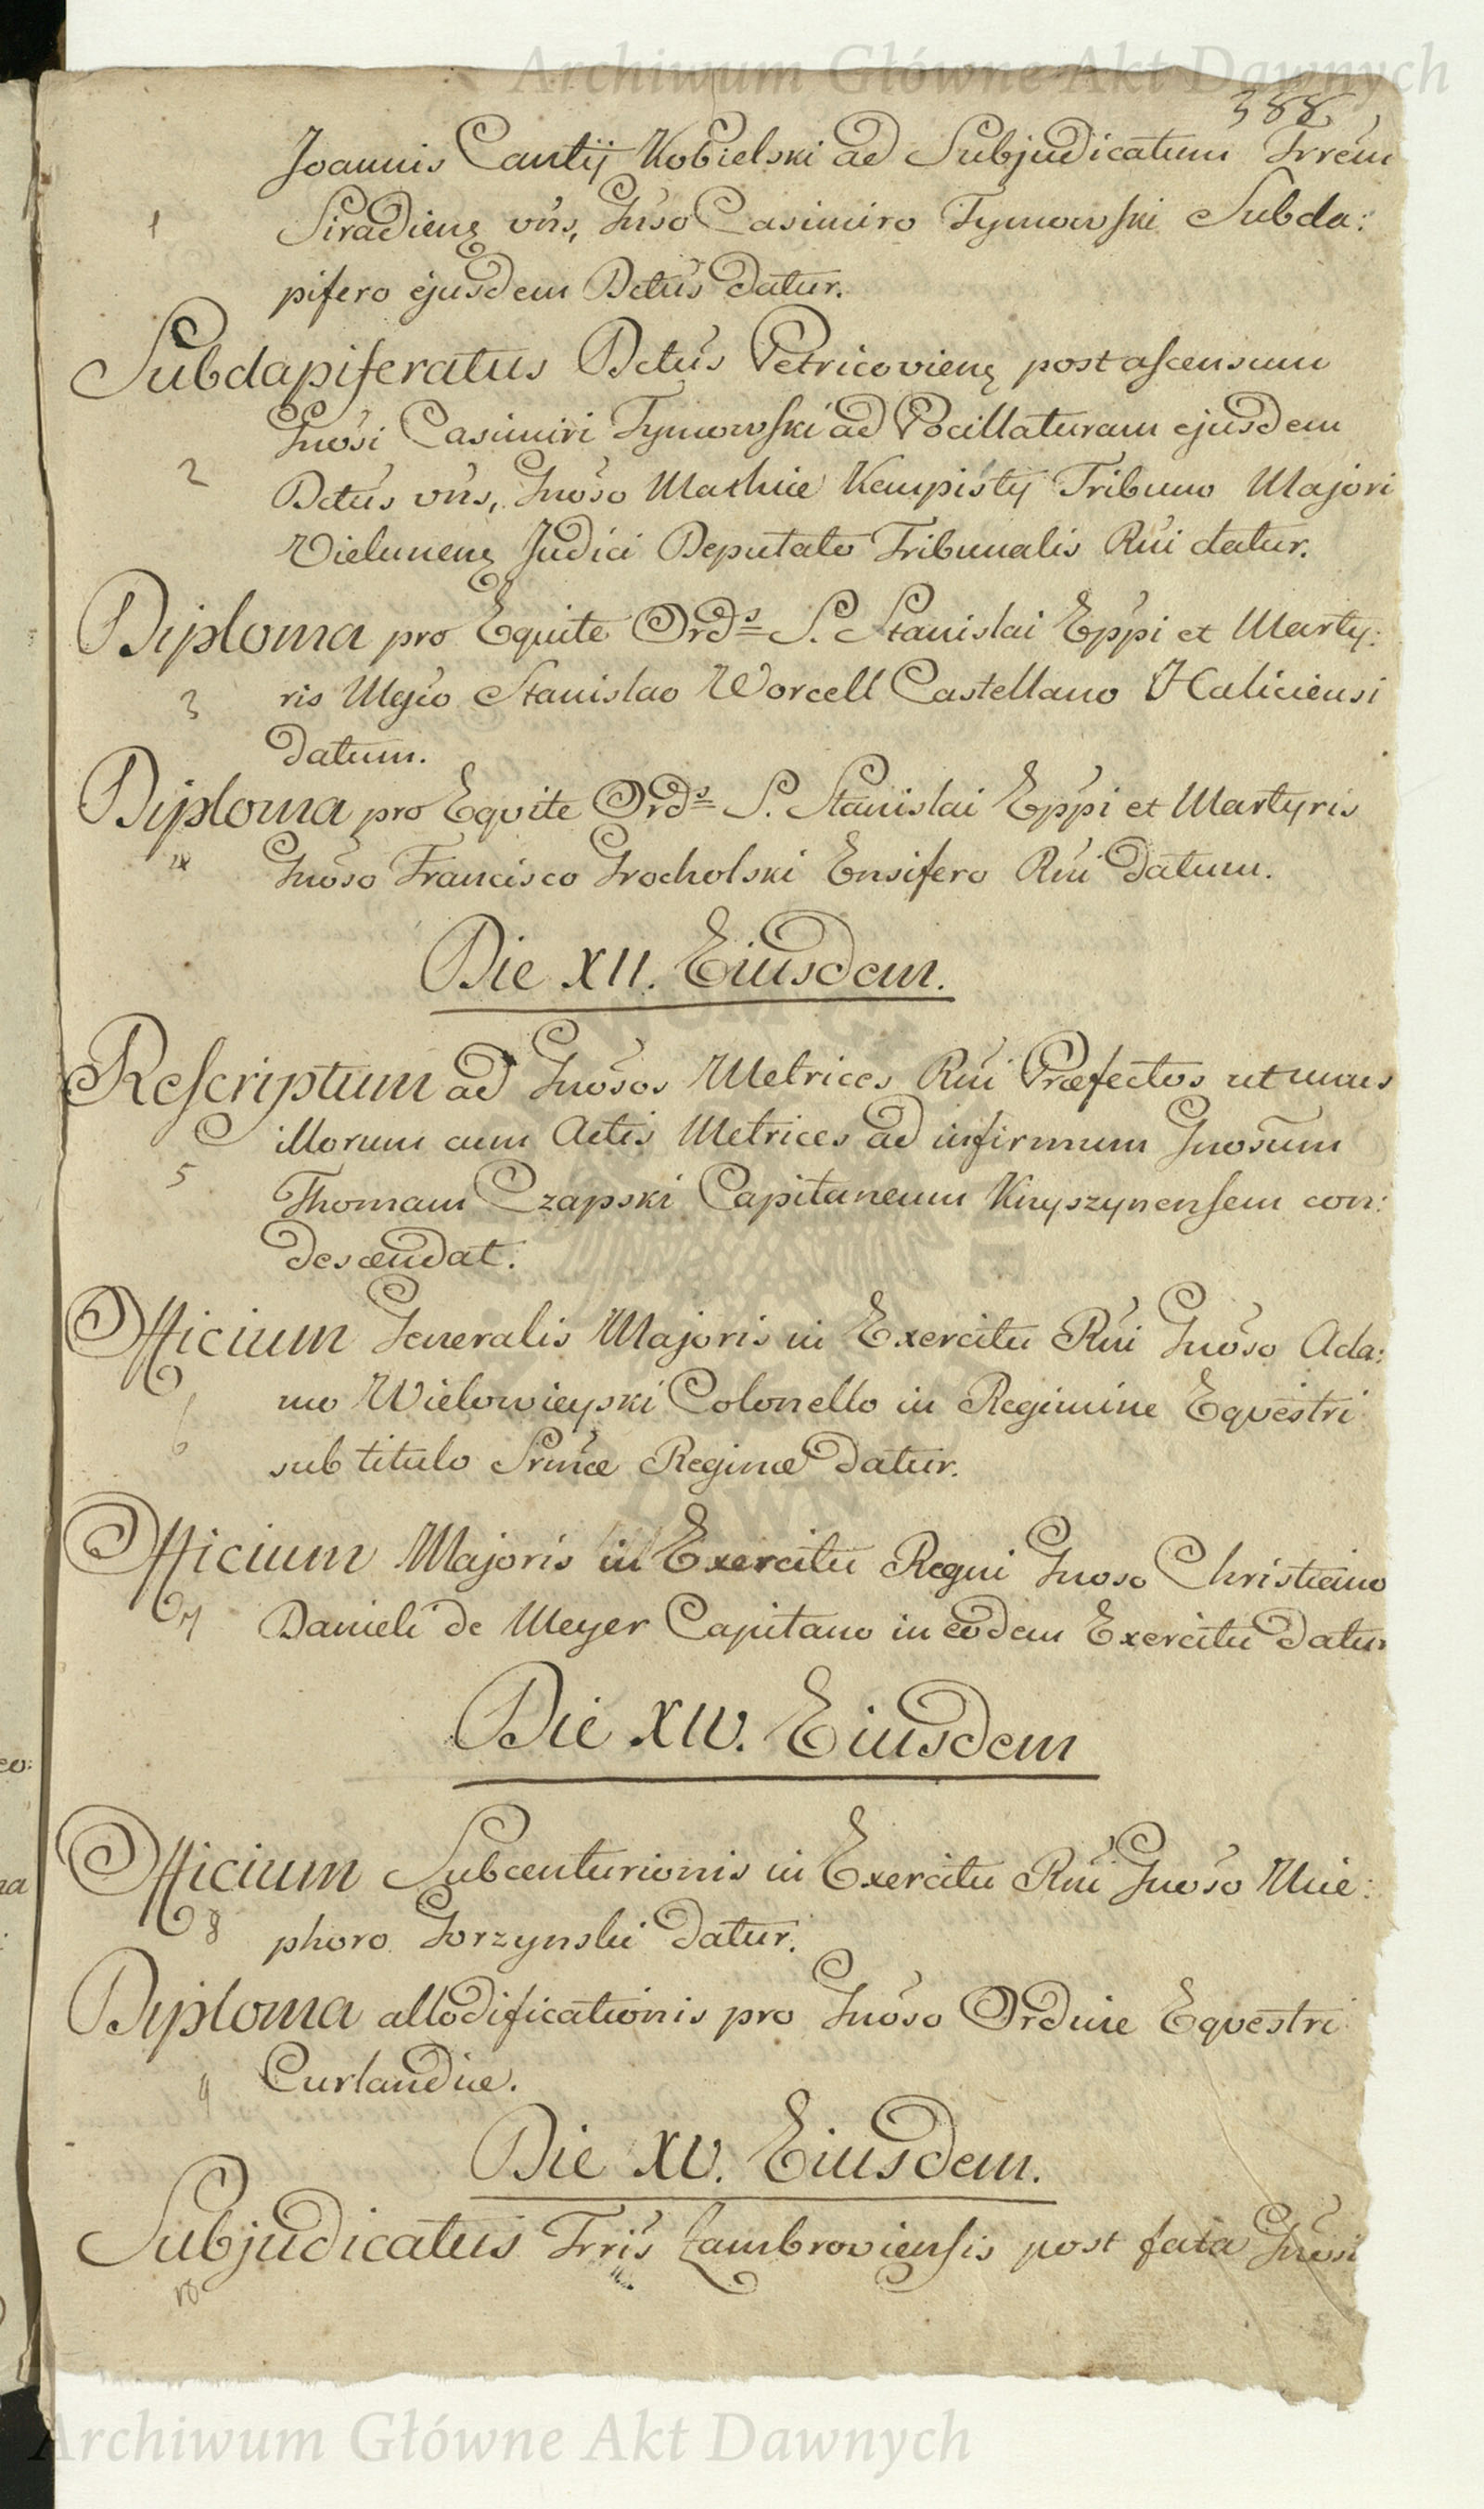 Archiwum Główne Akt Dawnych
388
Joannis Cantij Kobielski ad Subjudicatum Trrem
1 Siradieng vris, Gnso Casimiro Tymowski Subda:
pifero ejusdem Dctus datur.
Subdapiferatus Dctus Petricovieng post ascensum
Gnosi Casimiri Tymowski ad Pocillaturam ejusdem
2 Dctus vris, Gnoso Mathiæ Kempisty Tribuno Majori
Vieluneng Judici Deputato Tribunalis Rni datur.
Diploma pro Equite Ords S. Stanislai Eppi et Marty:
3 ris Mgco Stanislao Worcell Castellano Haliciensi
datum.
Diploma pro Equite Ords S. Stanislai Eppi et Martyris
Gnoso Francisco Grocholski Ensifero Rni datum.
Die XII. Eiusdem.
Rescriptum ad Gnosos Metrices Rni Præfectos ut unus
illorum cum Actis Metrices ad infirmum Gnosum
5 Thomam Czapski Capitaneum Knyszynensem con:
descendat.
Officium Generalis Majoris in Exercitu Rni Gnoso Ada:
6 mo Wielowieyski Colonello in Regimine Equestri
sub titulo Srmæ Reginæ datur.
Officium Majoris in Exercitu Regni Gnoso Christiano
7 Danieli de Meyer Capitano in eodem Exercitu datur
Die XIV. Eiusdem
Officium Subcenturionis in Exercitu Rni Gnoso Nice:
8 phoro Gorzynski datur.
Diploma allodificationis pro Gnoso Ordine Equestri
9 Curlandiæ.
Die XV. Eiusdem.
Subjudicatus Trris Zambroviensis post fata Gnosi
10
Archiwum Główne Akt Dawnych